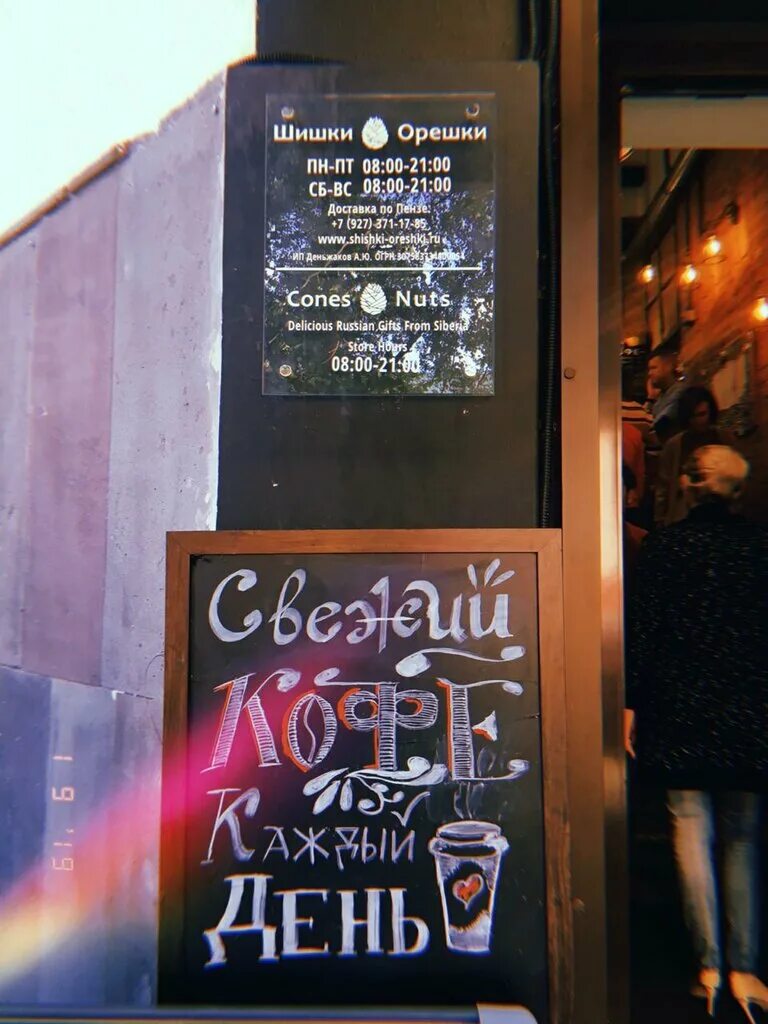 Шишки Орешки
ПН-ПТ 08:00-21:00
СБ-ВС 08:00-21:00
Доставка по Пензе:
+7 (927) 371-17-85
www.shishki-oreshki.ru
ИП Деньжаков А.Ю. ОГРН
Cones Nuts
Delicious Russian Gifts From Siberia
Store Hours
08:00-21:00
Свежий
КОФЕ
Каждый
ДЕНЬ